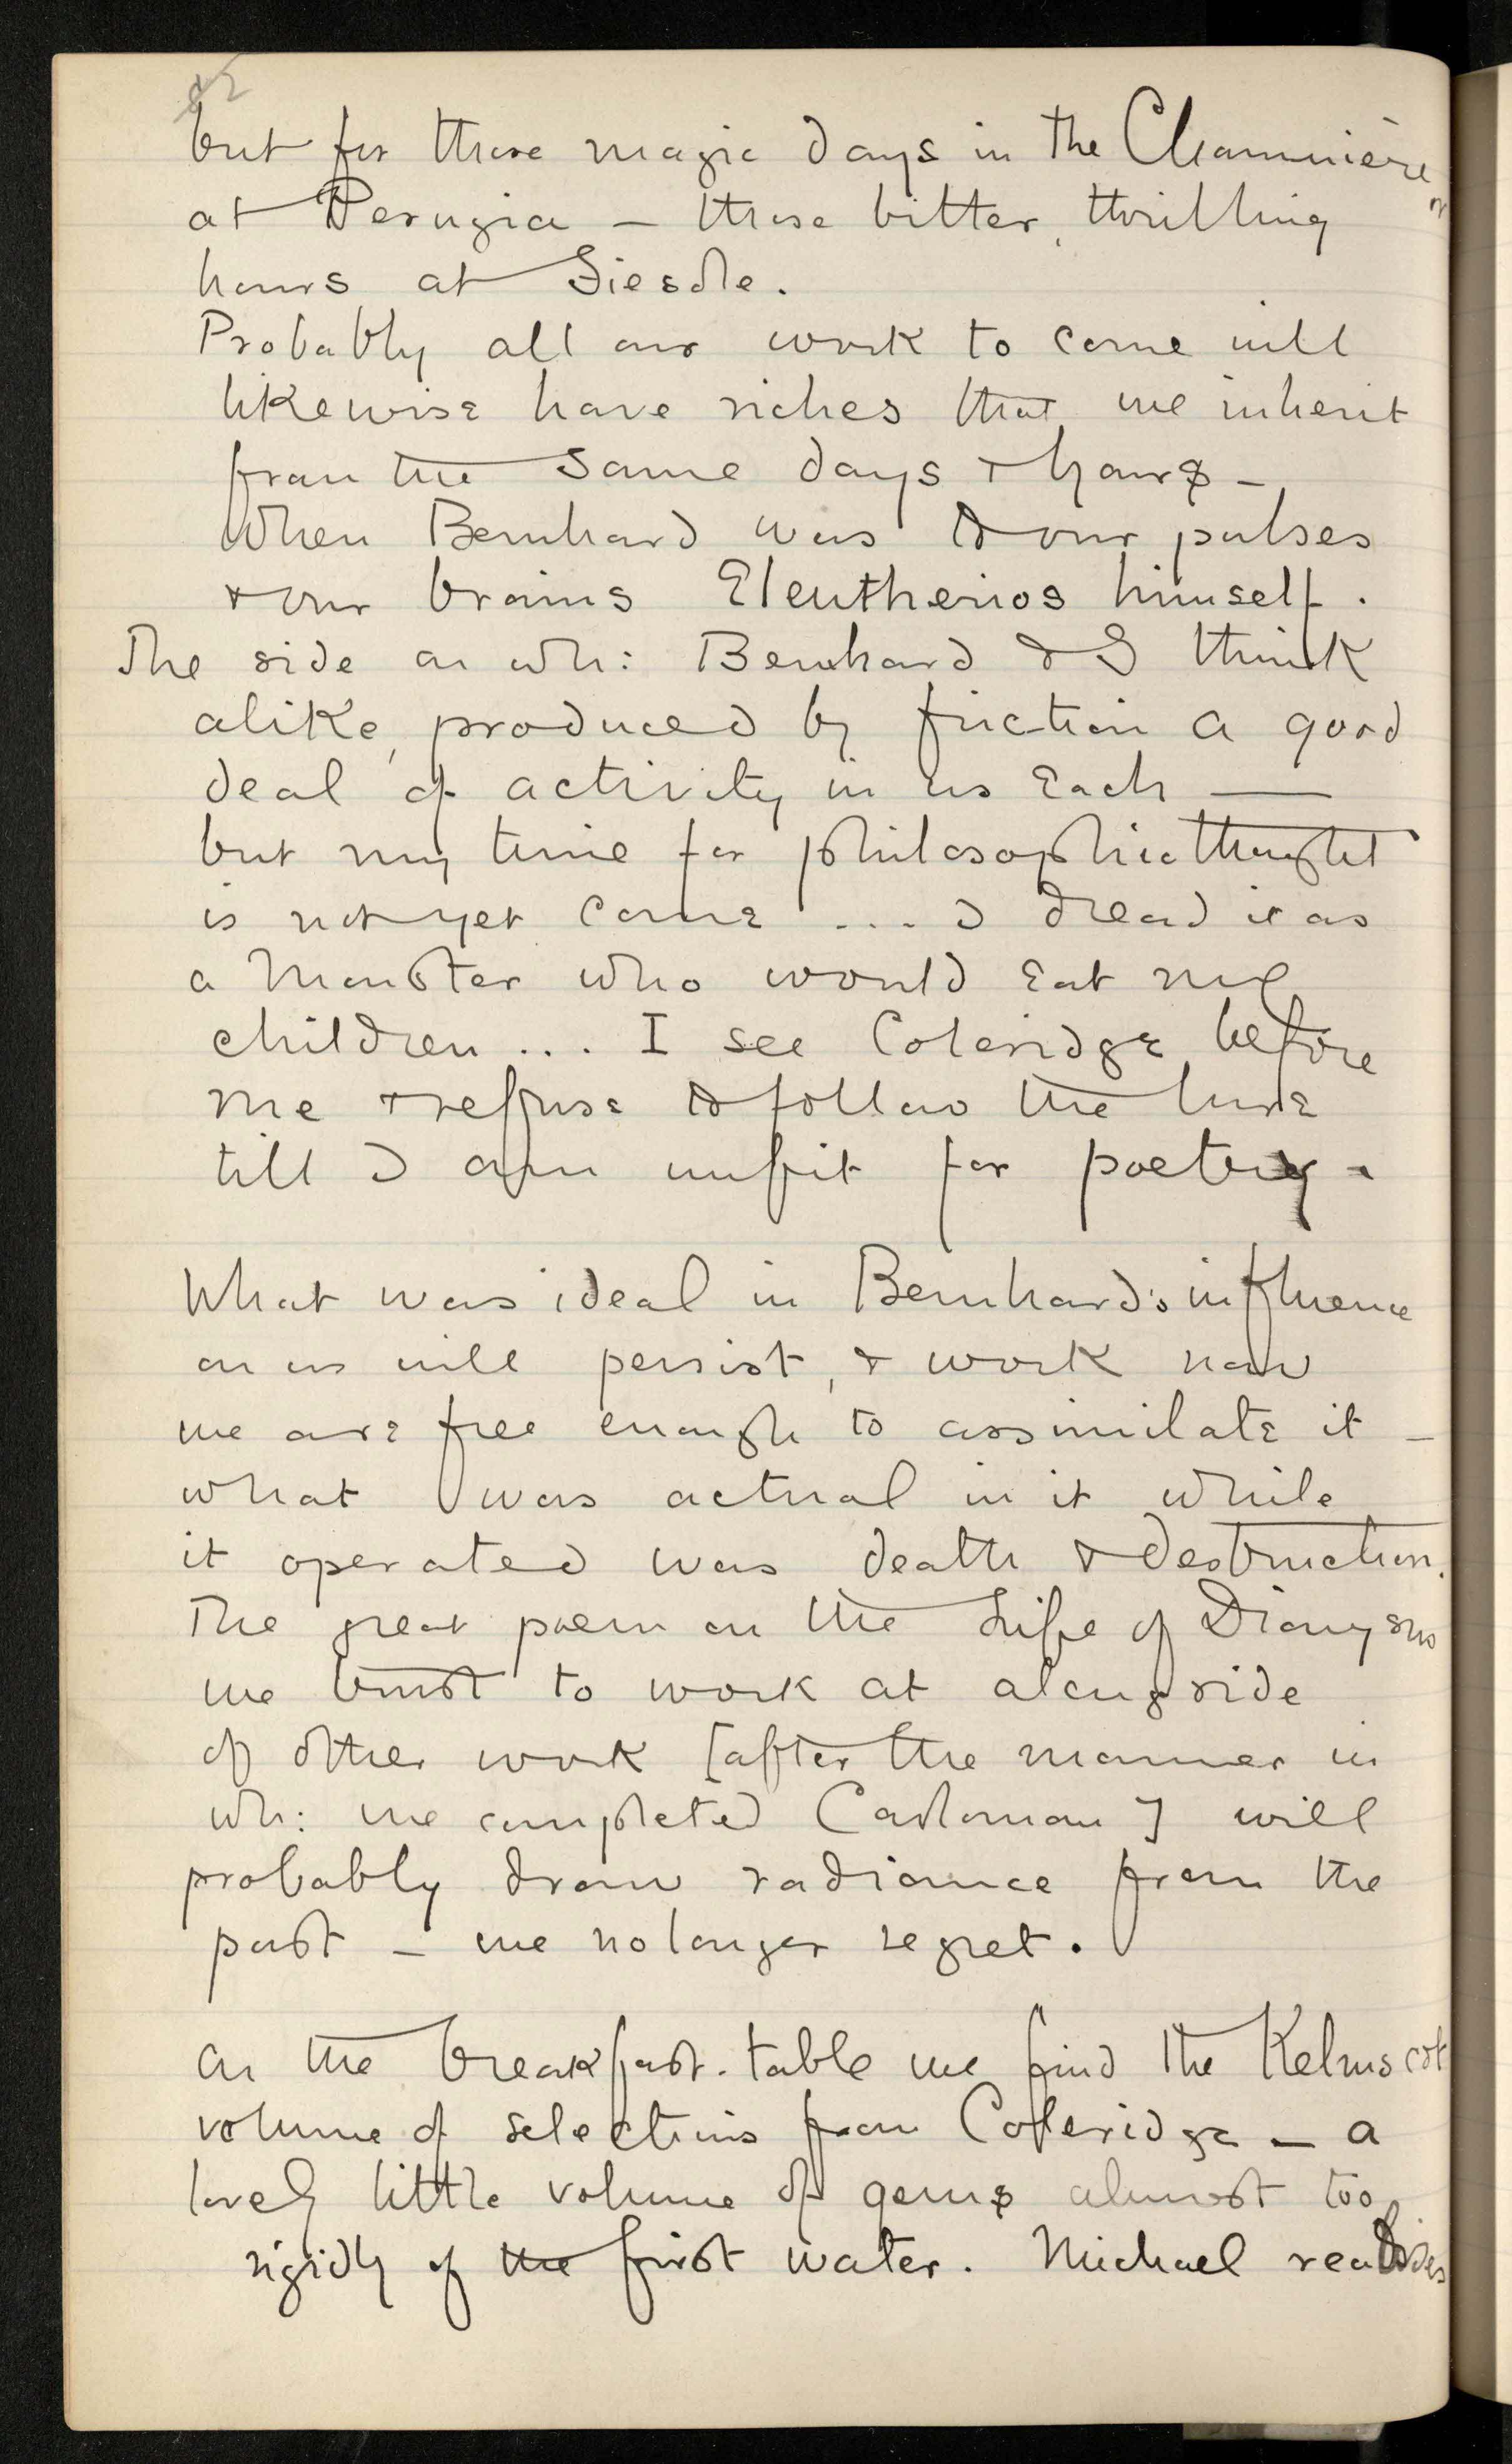 but for those magic days in the Chaumière
at Perugia — those bitter, thrilling
hours at Fiesole.
Probably all our work to come will
likewise have riches that we inherit
from the same days & hours —
When Bernhard was to our pulses
& our brains Eleutherios himself.
The side on wh: Bernhard & I think
alike, produced by friction a good
deal of activity in us each —
but my time for philosophic thought
is not yet come .... I dread it as
a monster who would eat my
children .... I see Coleridge before
me & refuse to follow the lure
till I am unfit for poetry.
What was ideal in Bernhard's influence
on us will persist, & work now
we are free enough to assimilate it —
what was actual in it while
it operated was death & destruction.
The great poem on the Life of Dionysus
we trust to work at alongside
of other work [after the manner in
wh: we completed Carloman] will
probably draw radiance from the
past — we no longer regret.
On the breakfast-table we find the Kelmscot
volume of selections from Coleridge — a
lovely little volume of gems almost too
rigidly of the first water. Michael realises